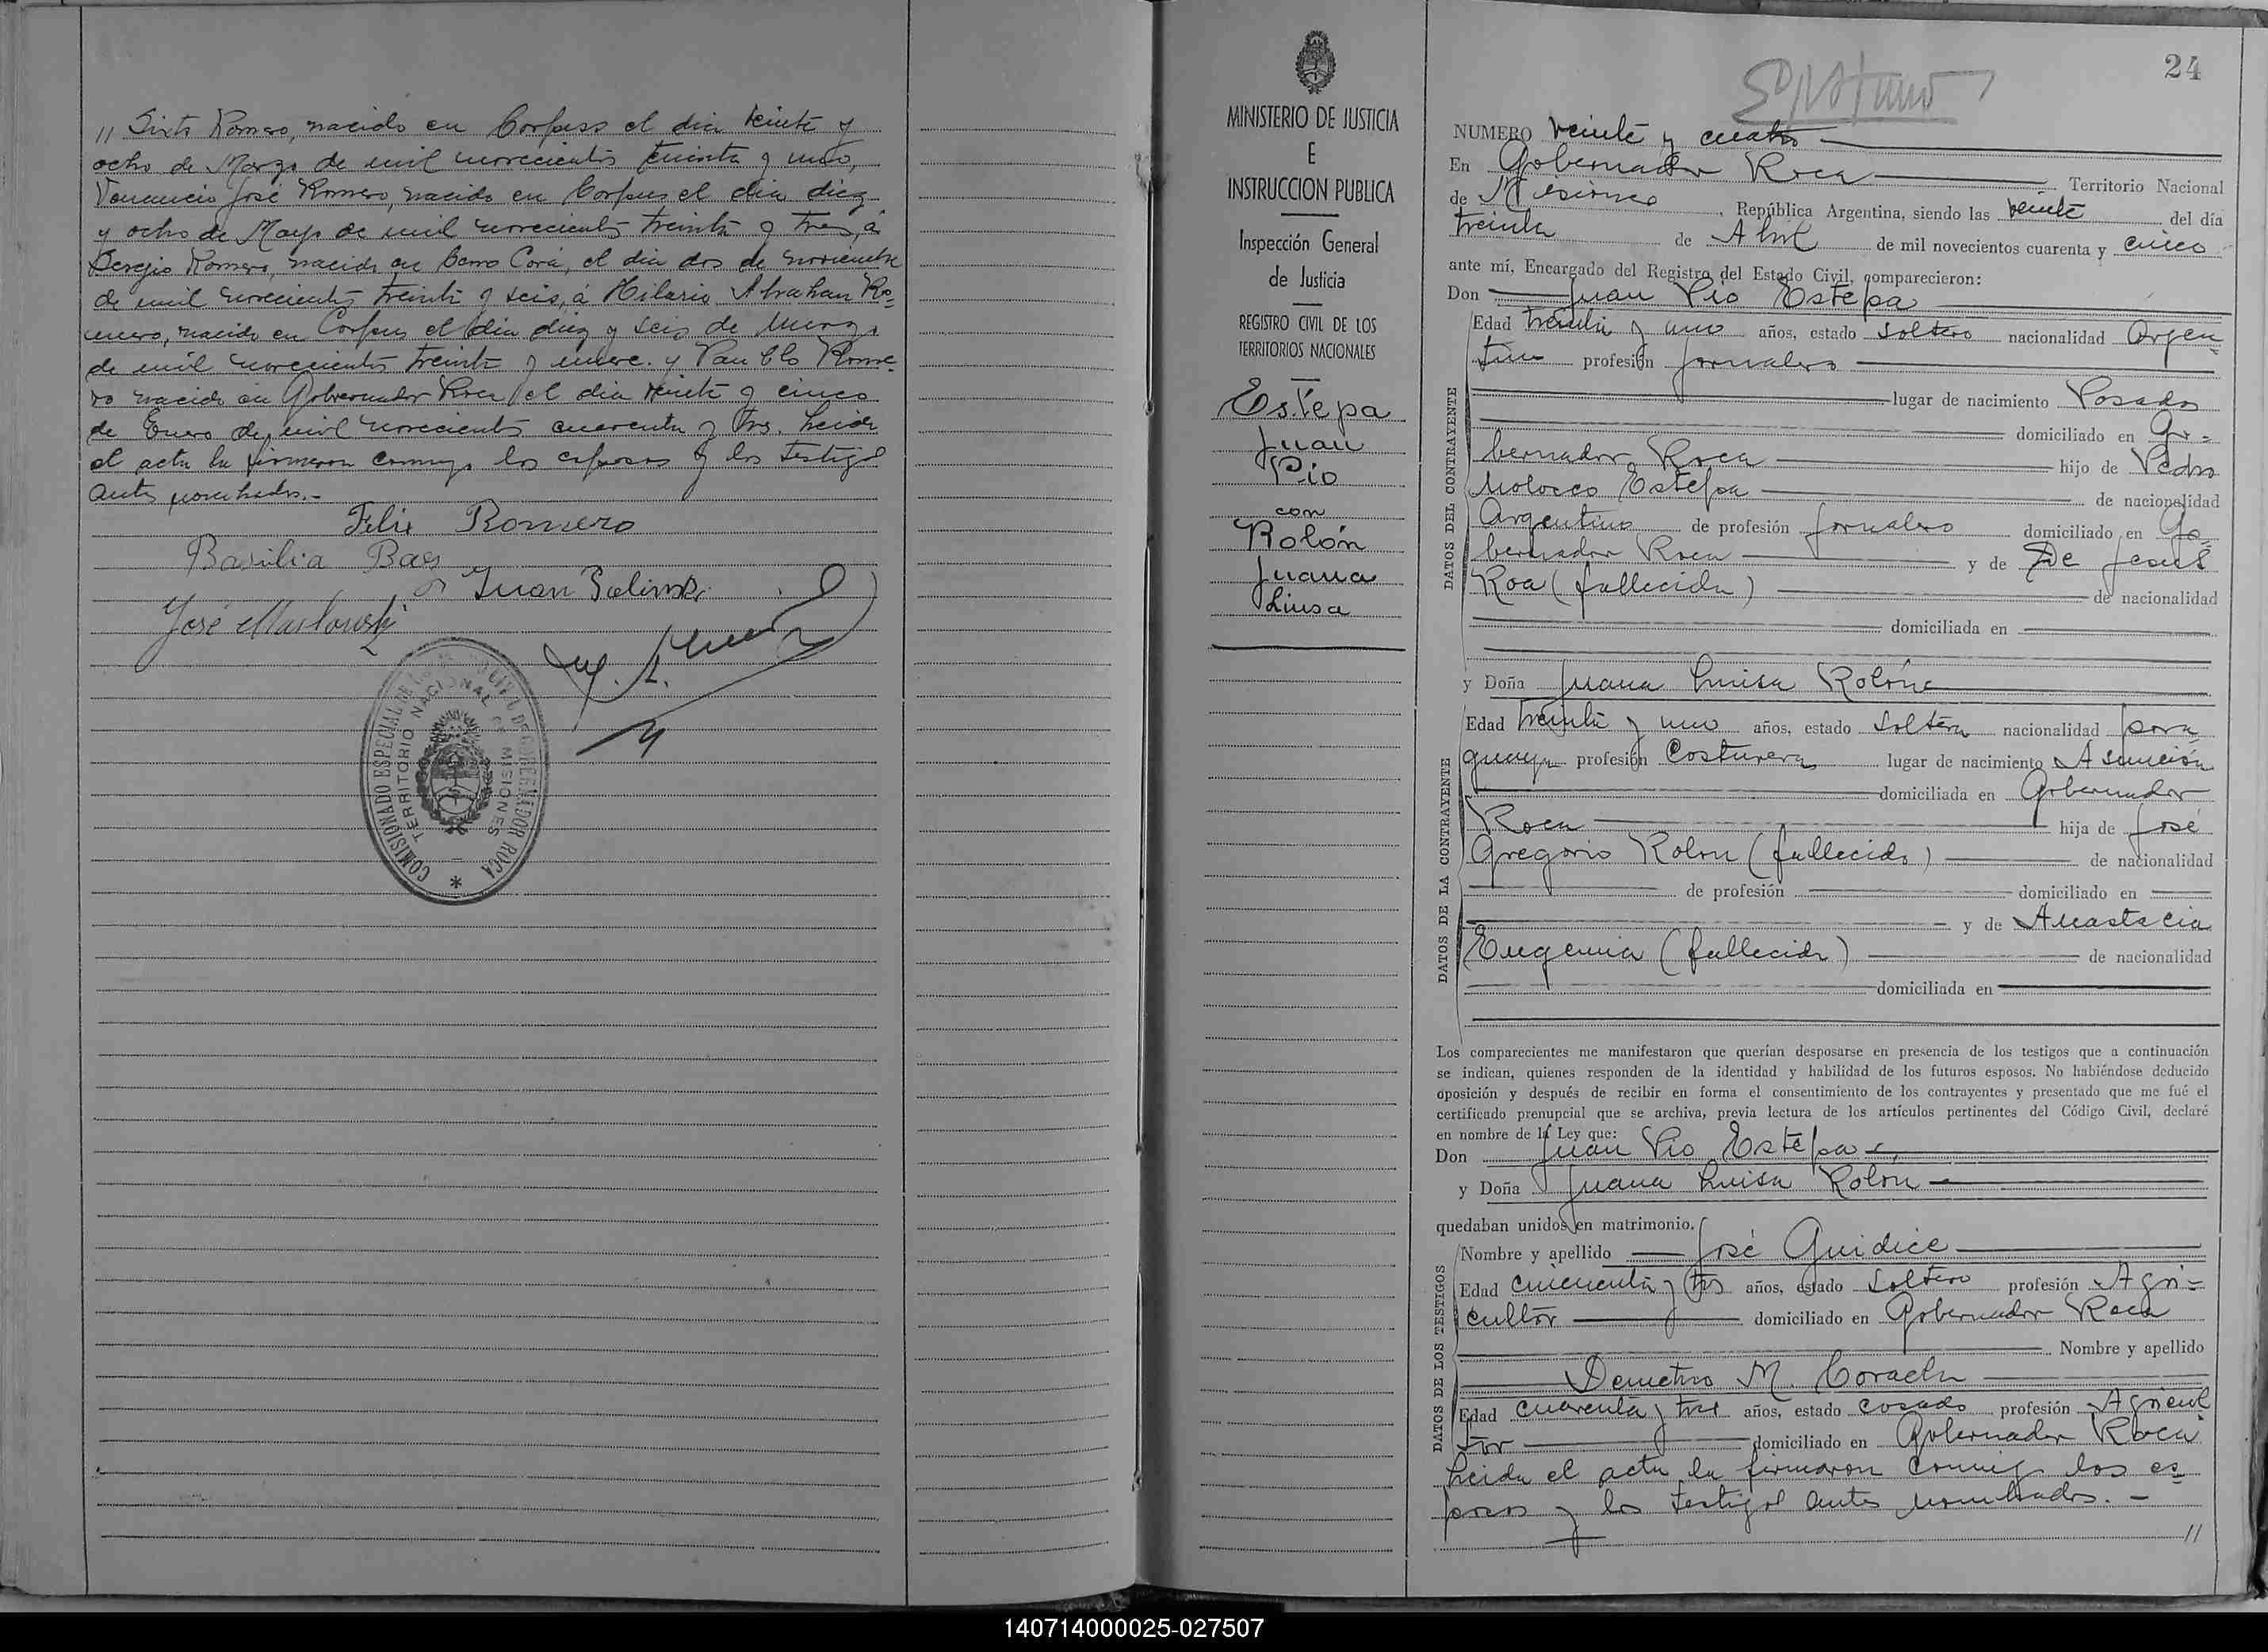 // Sixto Romero, nacido en Corpus el dia veinte y
ocho de Marzo de mil novecientos treinta y uno,
Venancio José Romero, nacido en Corpus el dia diez
y ocho de Mayo de mil novecientos treinta y tres, á
Sergio Romero, nacido en Cerro Corá, el dia dos de noviembre
de mil novecientos treinta y seis, á Hilario Abrahan Ro=
mero, nacido en Corpus el dia diez y seis de Marzo
de mil novecientos treinta y nueve. y Pau blo Rome=
ro nacido en Gobernador Roca el dia veinte y cinco
de Enero de mil novecientos cuarenta y tres. Leida
el acta la firmaron conmigo los esposos y los testigos
antes nombrados.-
Felix Romero
Basilia Baes
Juan
José
COMISIONADO ESPECIAL DE GOBERNADOR ROCA
TERRITORIO NACIONAL DE MISIONES
MINISTERIO DE JUSTICIA
E
INSTRUCCION PUBLICA
Inspección General
de Justicia
REGISTRO CIVIL DE LOS
TERRITORIOS NACIONALES
Estepa
Juan
Pío
con
Rolón
Juana
Luisa
24
NUMERO veinte y cuatro
En Gobernador Roca Territorio Nacional
de Misiones, República Argentina, siendo las veinte del día
treinta de Abril de mil novecientos cuarenta y cinco
ante mí, Encargado del Registro del Estado Civil, comparecieron:
Don Juan Pio Estepa
DATOS DEL CONTRAYENTE
Edad treinta y uno años, estado soltero nacionalidad Argen=
tino profesión jornalero
lugar de nacimiento Posadas
domiciliado en Go=
bernador Roca hijo de Pedro
Molocco Estepa de nacionalidad
Argentino de profesión jornalero domiciliado en Go=
bernador Roca y de De Jesus
Roa (fallecida) de nacionalidad
domiciliada en
y Doña Juana Luisa Rolón
DATOS DE LA CONTRAYENTE
Edad treinta y uno años, estado soltera nacionalidad para
guaya profesión Costurera lugar de nacimiento Asunción
domiciliada en Gobernador
Roca hija de José
Gregorio Rolon (fallecido) de nacionalidad
de profesión domiciliado en
y de Anastacia
Eugenia (fallecida) de nacionalidad
domiciliada en
Los comparecientes me manifestaron que querían desposarse en presencia de los testigos que a continuación
se indican, quienes responden de la identidad y habilidad de los futuros esposos. No habiéndose deducido
oposición y después de recibir en forma el consentimiento de los contrayentes y presentado que me fué el
certificado prenupcial que se archiva, previa lectura de los artículos pertinentes del Código Civil, declaré
en nombre de la Ley que:
Don Juan Pio Estepa
y Doña Juana Luisa Rolón
quedaban unidos en matrimonio.
DATOS DE LOS TESTIGOS
Nombre y apellido José Guidice
Edad cincuenta y tres años, estado soltero profesión Agri=
cultor domiciliado en Gobernador Roca
Nombre y apellido
Demetrio M.
Edad cuarenta y tres años, estado casado profesión Agricul
tor domiciliado en Gobernador Roca
Leida el acta la firmaron conmigo los es=
posos y los testigos antes nombrados. -
//
140714000025-027507